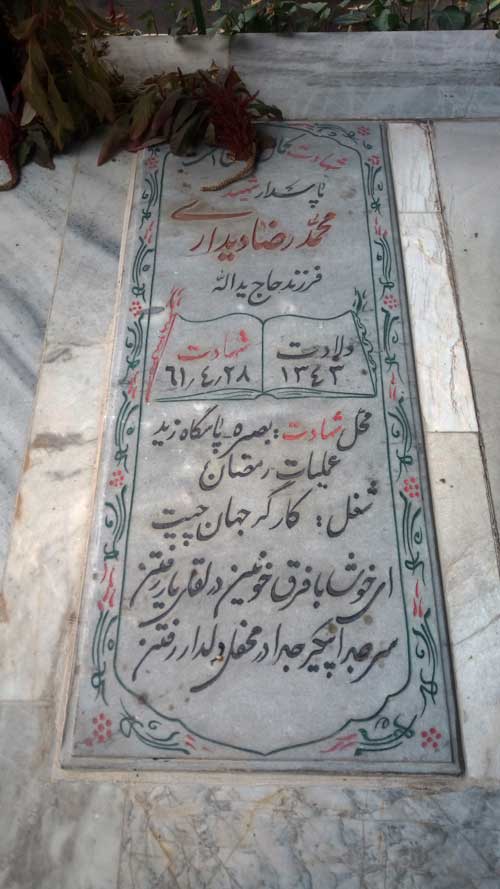 شهادت
پاسدار شهید
محمد رضا دیداری
فرزند حاج یدالله
ولادت شهادت
۱۳۴۳ ۶۱٫۴٫۲۸
محل شهادت: بصره-پاسگاه زید
عملیات رمضان
شغل: کارگر جهان چیت
ای خوشا با فرق خونین در لقای یار رفتن
سر جدا پیکر جدا در محفل دلدار رفتن